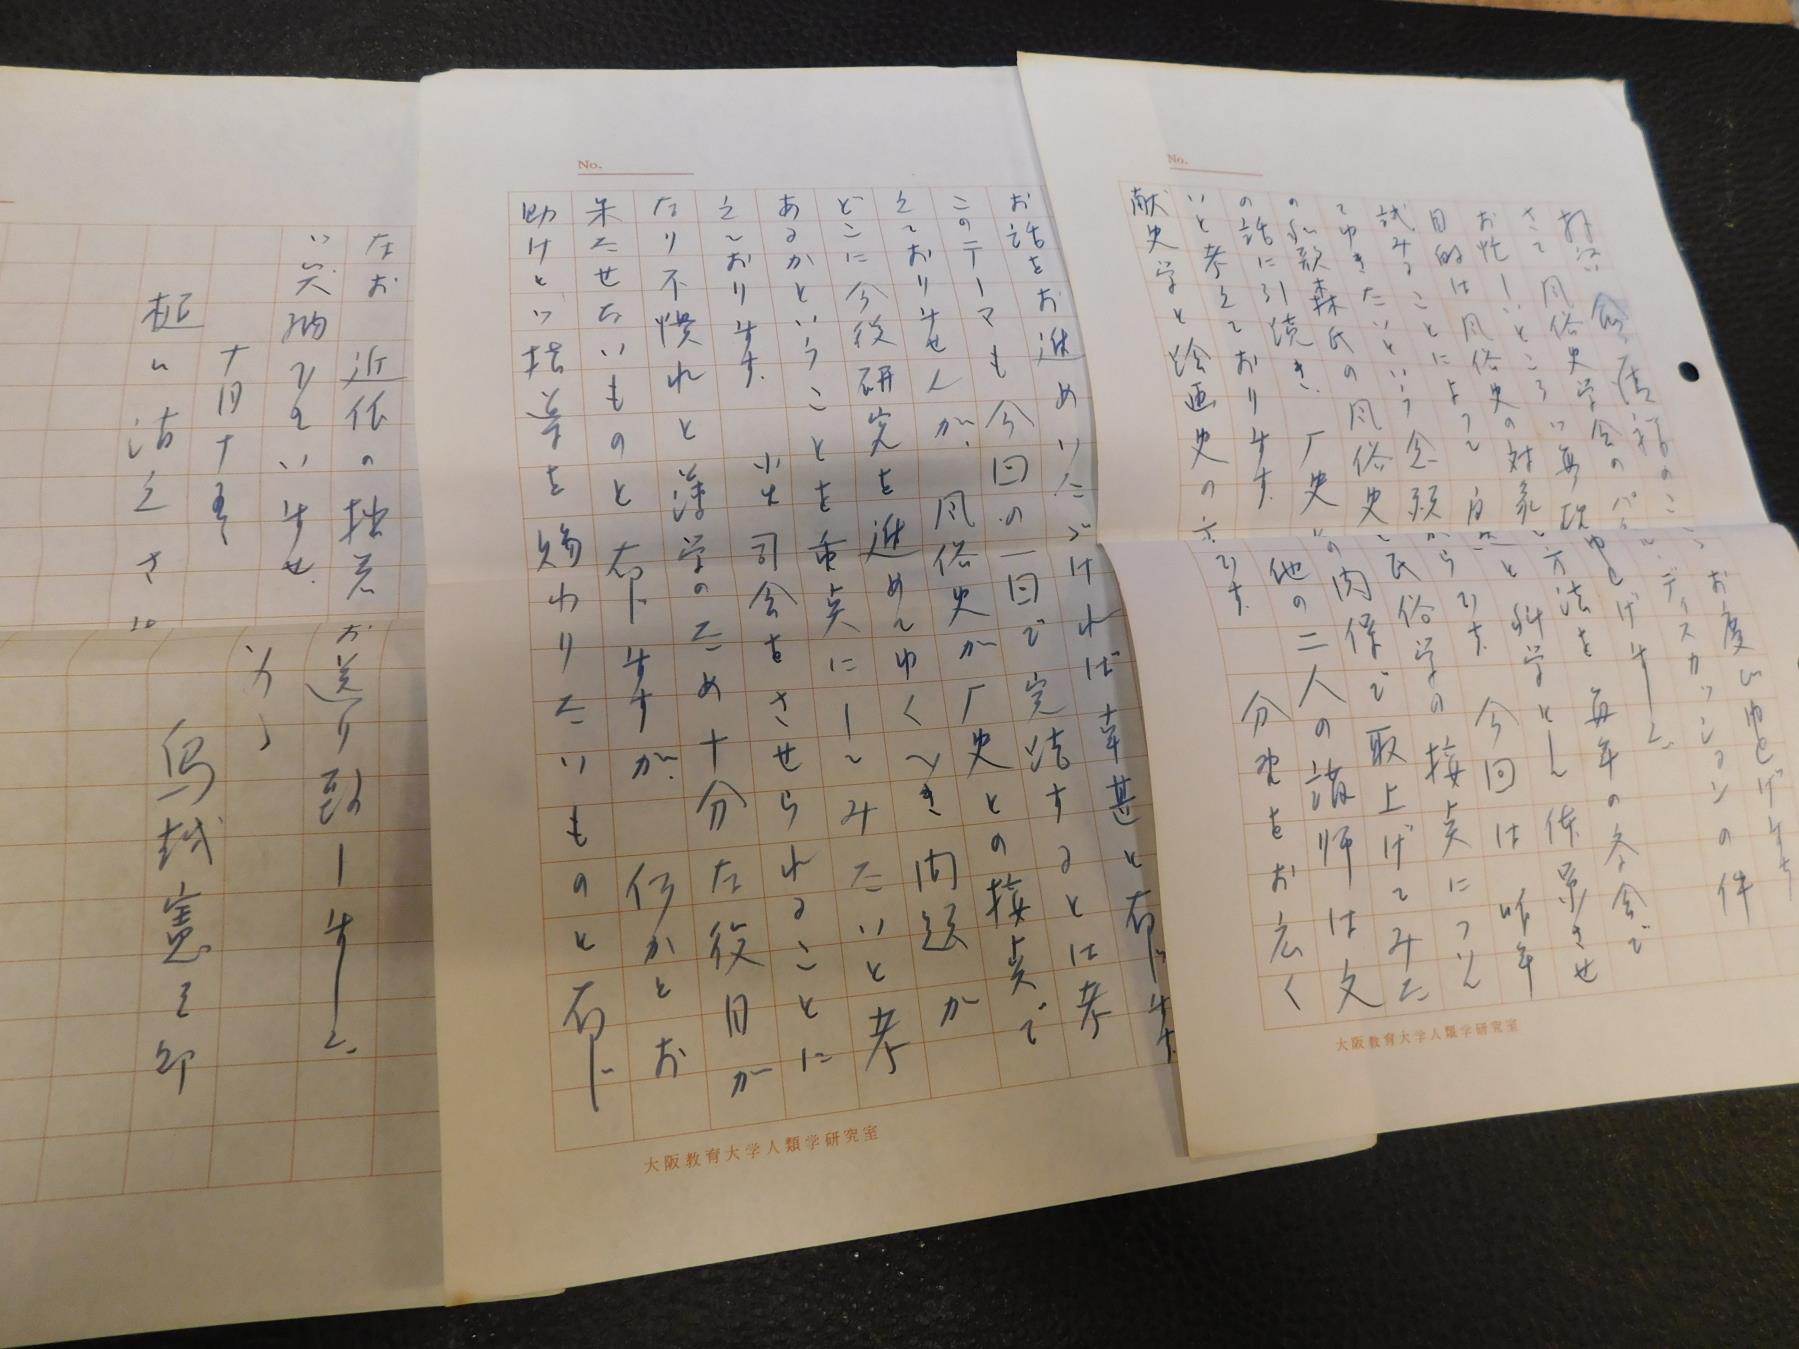 No.
拝啓 益々御清祥のこと お慶び申し上げます
さて 風俗史学会のパネル・ディスカッションの件
お忙しいところ 申し上げまして
目的は風俗史の対象と方法を 毎年の大会で
試みることによって 科学として体系させ
てゆきたいという念願からです 今回は 昨年
の和歌森氏の風俗史と民俗学の接点について
の話に引続き、厂史との関係で取上げてみた
いと考えております。 他の二人の講師は文
献史学と絵画史の方です。 分野をお広く
大阪教育大学人類学研究室
No.
お話をお進めいただければ幸甚と存じます。
このテーマも今回の一回で完結するとは考
えておりませんが、風俗史が厂史との接点で
どこに今後研究を進めてゆくべき問題が
あるかということを重点にしてみたいと考
えております。 小生司会をさせられることに
なり不慣れと浅学のため十分な役目が
果たせないものと存じますが、何かとお
助けとご指導を賜わりたいものと存じ
大阪教育大学人類学研究室
なお 近作の拙著お送り致しまして
ご笑納下さいませ。
十月十
鳥越憲三郎